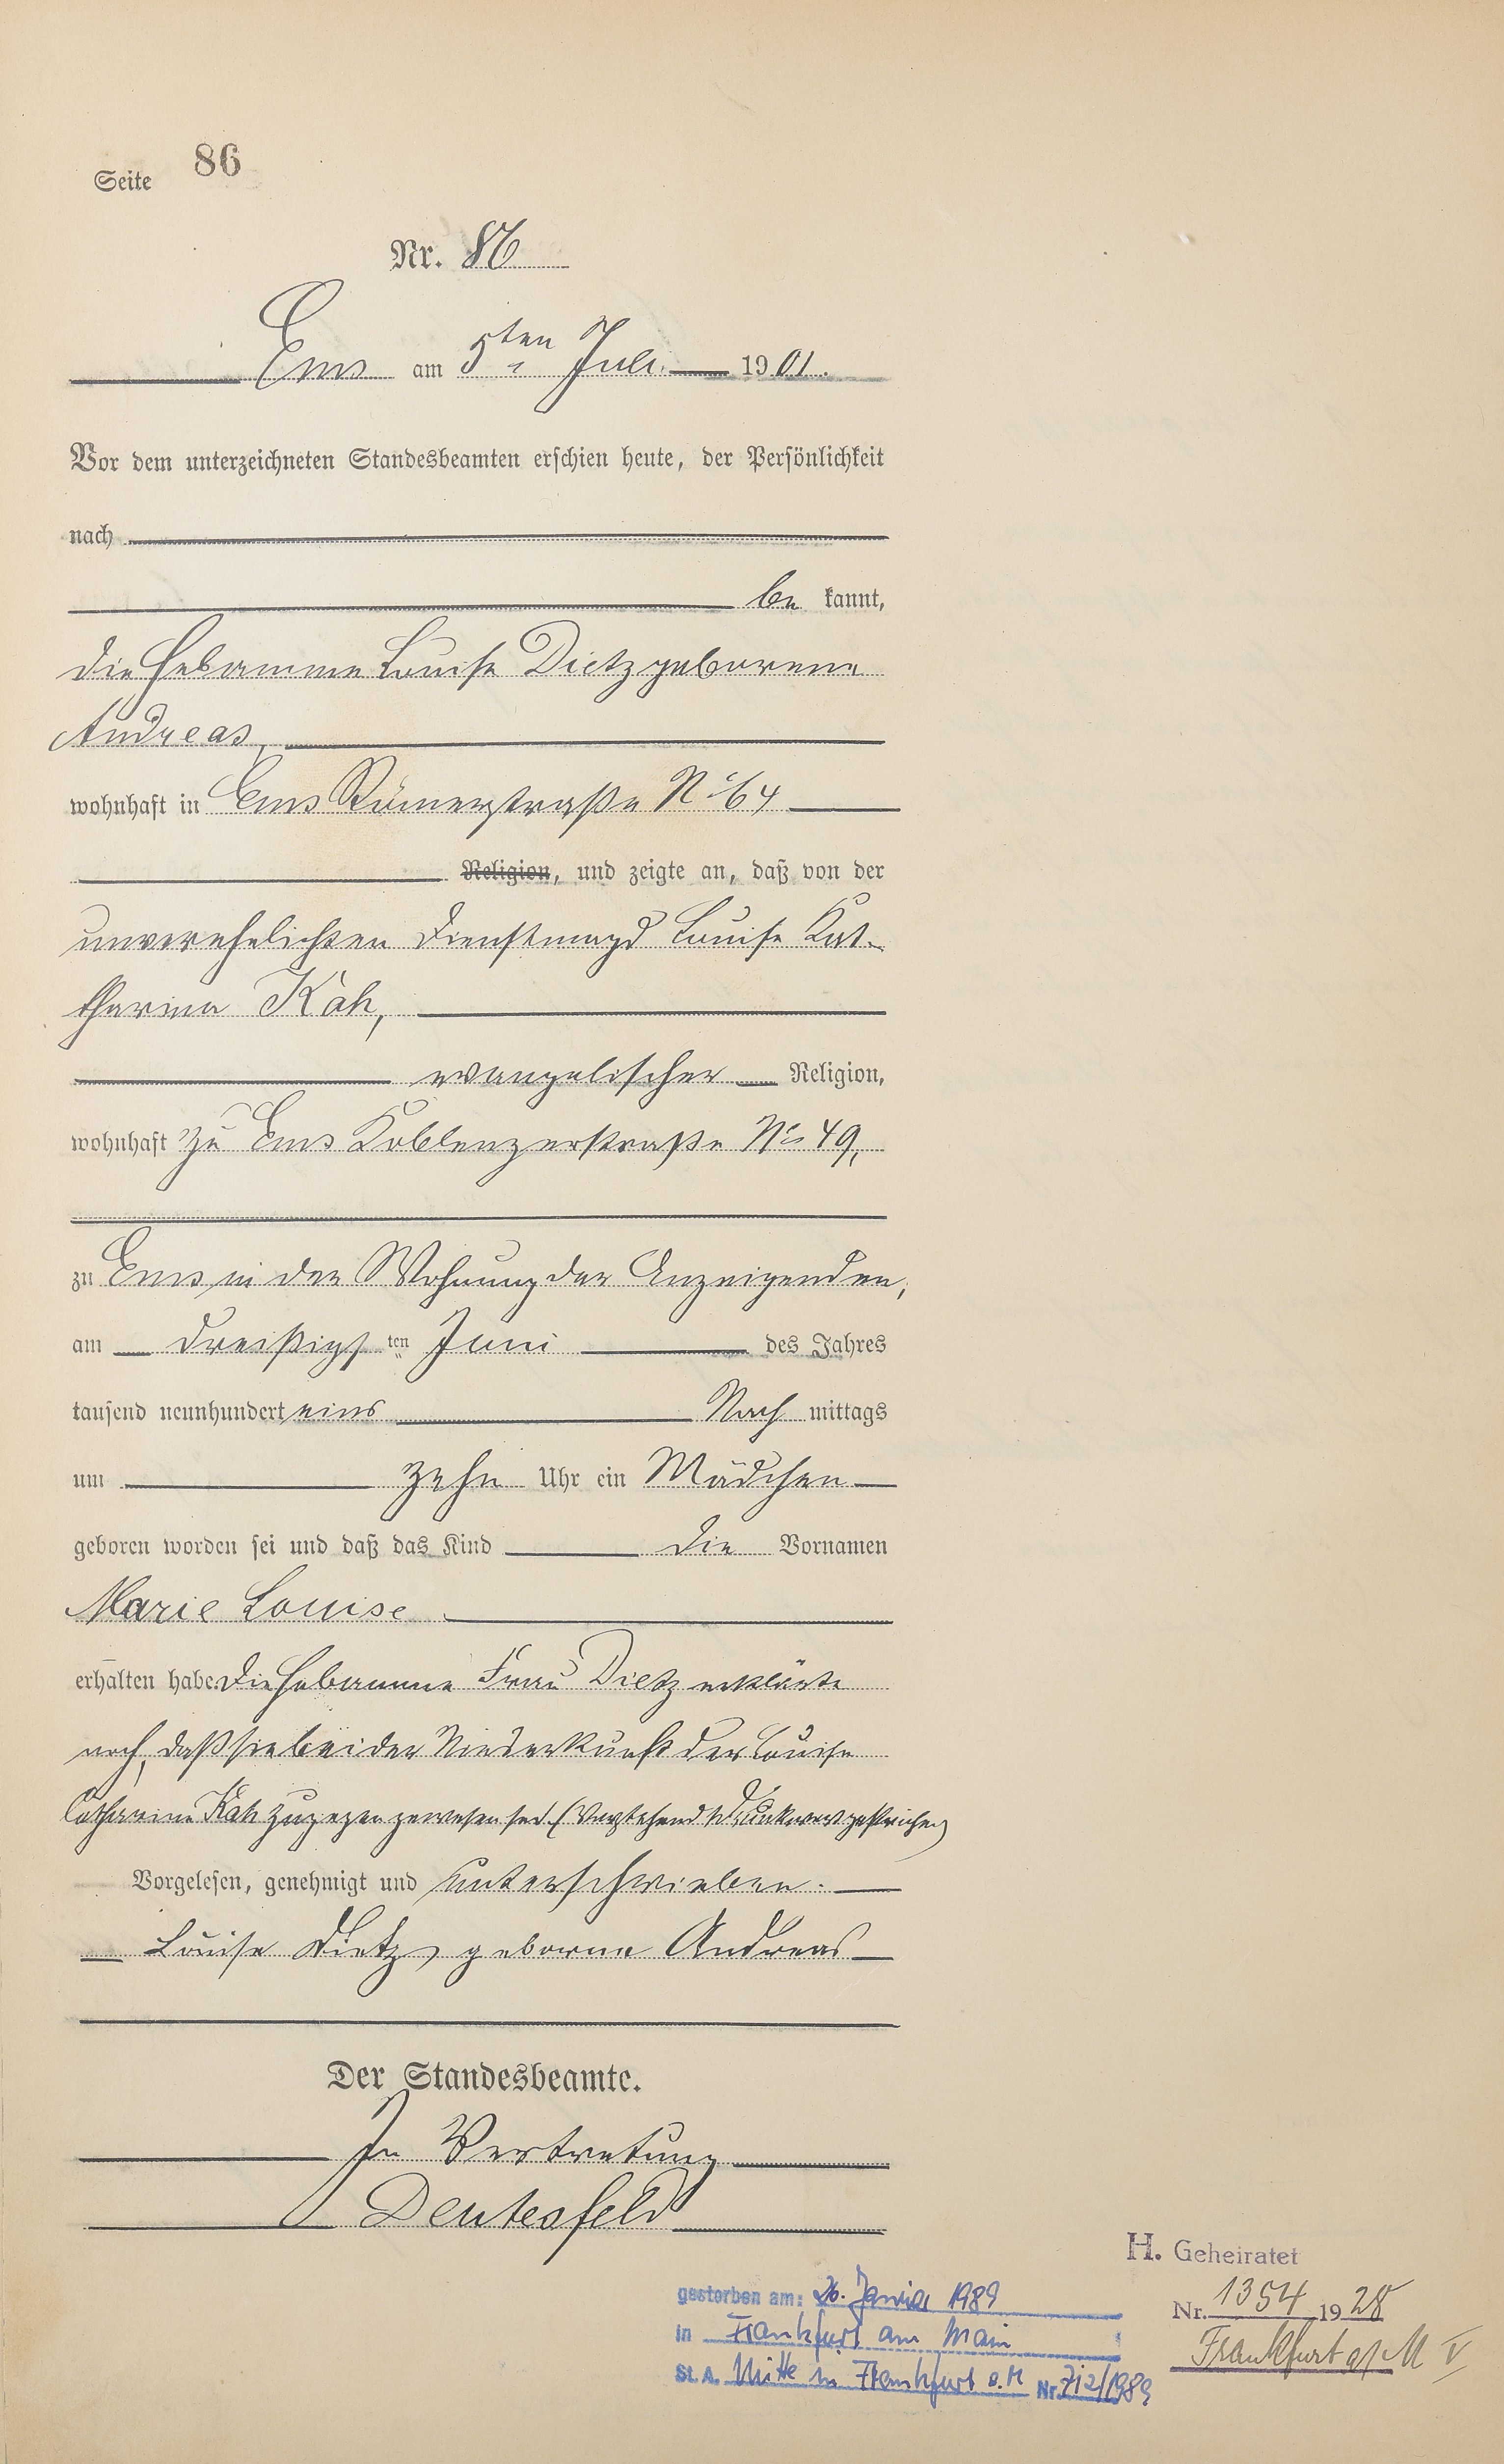 Seite 86
Nr. 86
Ems am 5ten Juli 1901.
Vor dem unterzeichneten Standesbeamten erschien heute, der Persönlichkeit
nach
be kannt,
die Hebamme Louise Dietz geborene
Andreas,
wohnhaft in Ems Römerstraße No 64
Religion, und zeigte an, daß von der
unverehelichten Dienstmagd Louise Kat-
tharina Kah,
evangelischer Religion,
wohnhaft zu Ems Koblenzerstraße No 49,
zu Ems in der Wohnung der Anzeigenden,
am dreißigs ten Juni des Jahres
tausend neunhundert eins Nach mittags
um zehn Uhr ein Mädchen
geboren worden sei und daß das Kind die Vornamen
Marie Louise
erhalten habe. Die Hebamme Frau Dietz erklärte
noch, daß sie bei der Niederkunft der Louise
Catharina Kah zugegen gewesen sei. (Vorstehend 1 Druckwort gestrichen)
Vorgelesen, genehmigt und unterschrieben.
Louise Dietz, geborne Andreas
Der Standesbeamte.
In Vertretung
Deutesfeld
H. Geheiratet
Nr. 1354 1928
Frankfurt a/M V
gestorben am: 26. Januar 1989
in Frankfurt am Main
St. A. Mitte in Frankfurt a. M Nr. 712/1989